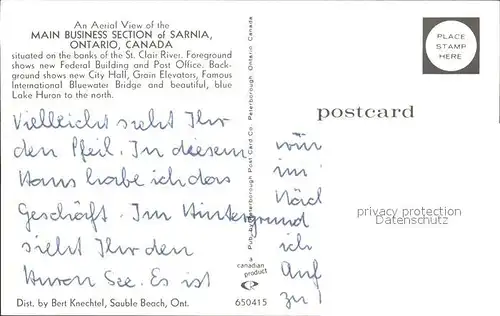 An Aerial View of the
MAIN BUSINESS SECTION of SARNIA,
ONTARIO, CANADA
situated on the banks of the St. Clair River. Foreground
shows new Federal Building and Post Office. Back-
ground shows new City Hall, Grain Elevators, Famous
International Bluewater Bridge and beautiful, blue
Lake Huron to the north.
Vielleicht sieht Ihr
den Pfeil. In diesem
Haus habe ich das
Geschäft. Im Hintergrund
sieht Ihr den
Huron See. Es ist
Dist. by Bert Knechtel, Sauble Beach, Ont.
650415
Pub. by Peterborough Post Card Co. Peterborough Ontario Canada
a
canadian
product
PLACE
STAMP
HERE
postcard
im
ich
Auf
zu
privacy protection
Datenschutz